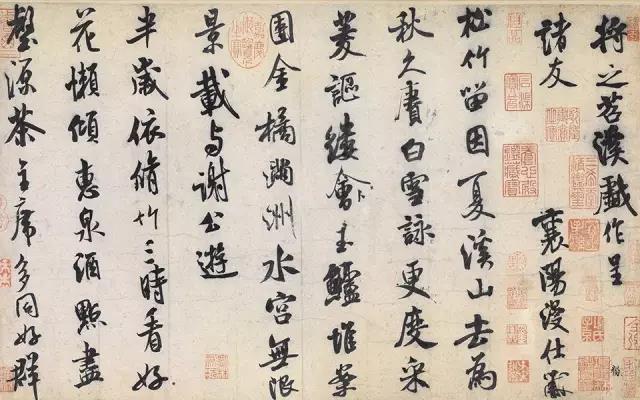 将之苕溪戲作呈
諸友 襄陽漫仕黻
松竹留因夏溪山去為
秋久賡白雪詠更度采
菱謳縷會玉鱸堆案
團金橘滿洲水宮無限
景載与謝公遊
半歲依脩竹三時看好
花懶傾惠泉酒點盡
壑源茶主席多同好群